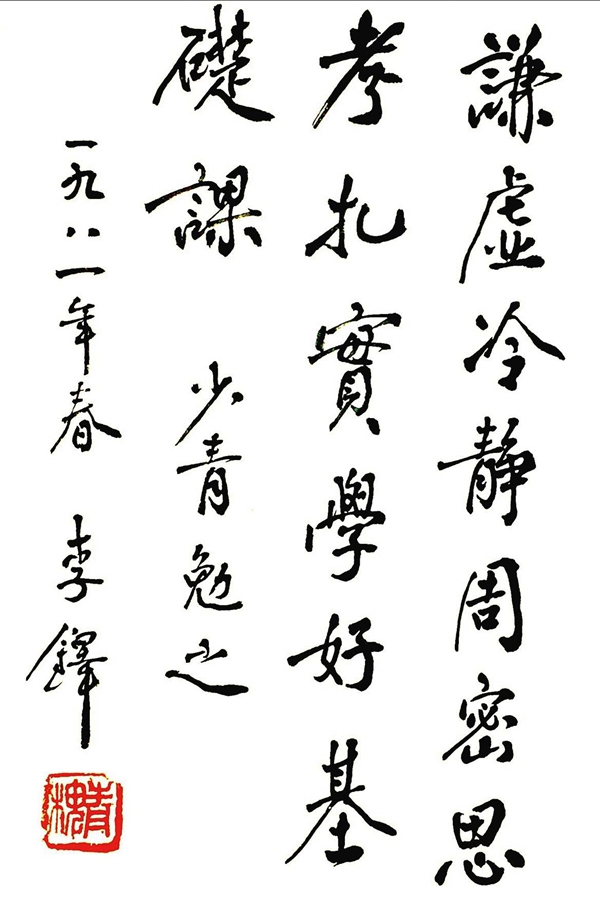 謙虚冷静周密思
考扎實學好基
礎課 少青勉之
一九八一年春 李鐸
青槐